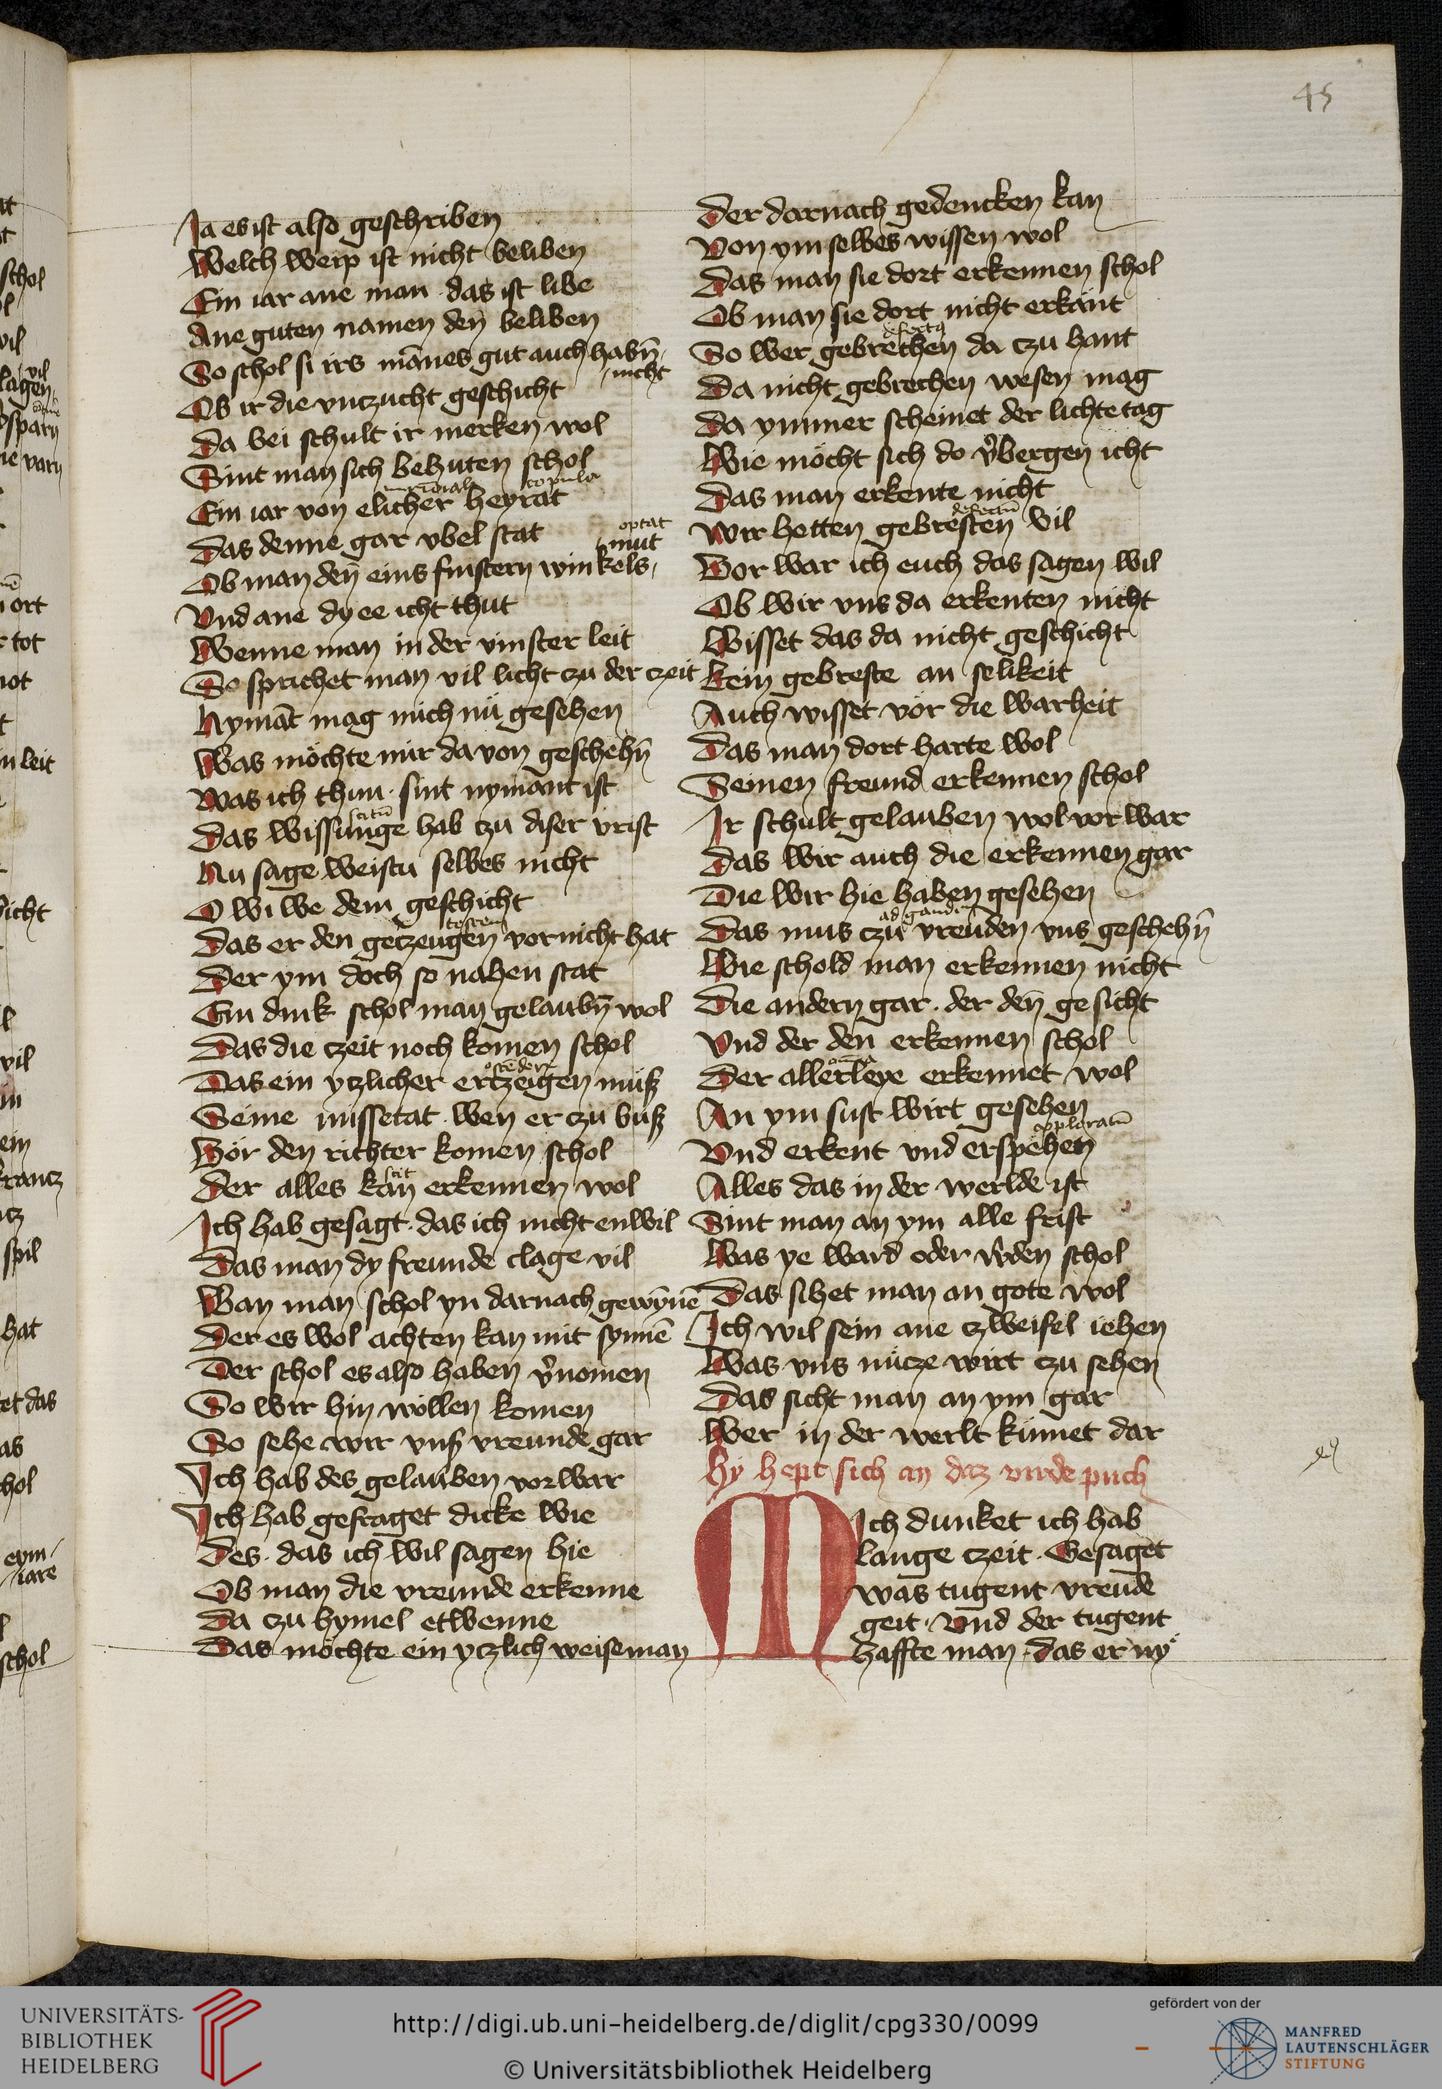 45
Ja es ist also geschriben
Welch weip ist nicht beliben
Ein iar ane man · das ist libe
Ane guten namen den̄ beliben
So schol si irs mānes gut auch habn̄
nicht
Ob ir die vnczucht geschicht
Da bei schult ir merken wol
Sint man sich behuten schol
copula
Ein iar von elicher heyrat
Das denne gar vbel stat
optat
mut
Ob man den̄ eins finstern winkels
Vnd ane dy ee icht thut
Wenne man in der vinster leit
So sprichet man vil licht czu der czeit
Nymāt mag mich nu gesehen
Was möchte mir da von geschehn̄
Was ich thun · sint nymant ist
Das wissunge hab czu diser vrist
Nu sage weistu selbes nicht
O wi we dem geschicht
Das er den geczeugen vornicht hat
Der ym doch so nahen stat
Ein dink schol man gelaubn̄ wol
Das die czeit noch komen schol
Das ein yczlicher erczeigen müß
Seine missetat · wen er czu buß
Vör den richter komen schol
scit
Der alles kan erkennen wol
Ich hab gesagt · das ich nicht enwil
Das man dy freunde clage vil
Wan man schol yn darnach gewȳnē
Der es wol achten kan mit synnē
Der schol es also haben v̾nomen
So wir hin wöllen komen
So sehe wir vnß vreunde gar
Ich hab des gelauben vorwar
Ich hab gefraget dicke wie
Des · das ich wil sagen hie
Ob man die vreunde erkenne
Da czu hymel etwenne
Das möchte ein yczlich weiseman
Der darnach gedencken kan
Von ym selbes wissen wol
Das man sie dort erkennen schol
Ob man sie dort nicht erkānt
So wer gebrechen da czu hant
Da nicht gebrechen wesen mag
Da ymmer scheinet der lichte tag
Wie möcht sich do v̾bergen icht
Das man erkente nicht
Wir hetten gebresten vil
Vor war ich euch das sagen wil
Ob wir vns da erkenten nicht
Wisset das da nicht geschicht
Kein gebreste an selikeit
Auch wisset vör die warheit
Das man dort harte wol
Seinen freund erkennen schol
Ir schult gelauben wol vor war
Das wir auch die erkennen gar
Die wir hie haben gesehen
Das mus czu vreuden vns geschehn̄
Wie schold man erkennen nicht
Die andern gar · der den̄ gesicht
Vnd der den erkennen schol
Der allerleye erkennet wol
An ym sust wirt gesehen
Vnd erkent vnd erspehen
Alles das in der werlde ist
Sint man an ym alle frist
Was ye ward oder w̾den schol
Das sihet man an gote wol
Ich wil sein ane czweifel iehen
Was vns nücze wirt czu sehen
Das sicht man an ym gar
Wer in der werlt kümet dar
Hy hept sich an daz virde puch
Mich dunket ich hab
lange czeit · Gesaget
was tugent vreude
geit · Vnd der tugent
haffte man · das er ny
UNIVERSITÄTS-
BIBLIOTHEK
HEIDELBERG
http://digi.ub.uni-heidelberg.de/diglit/cpg330/0099
© Universitätsbibliothek Heidelberg
gefördert von der
MANFRED
LAUTENSCHLÄGER
STIFTUNG